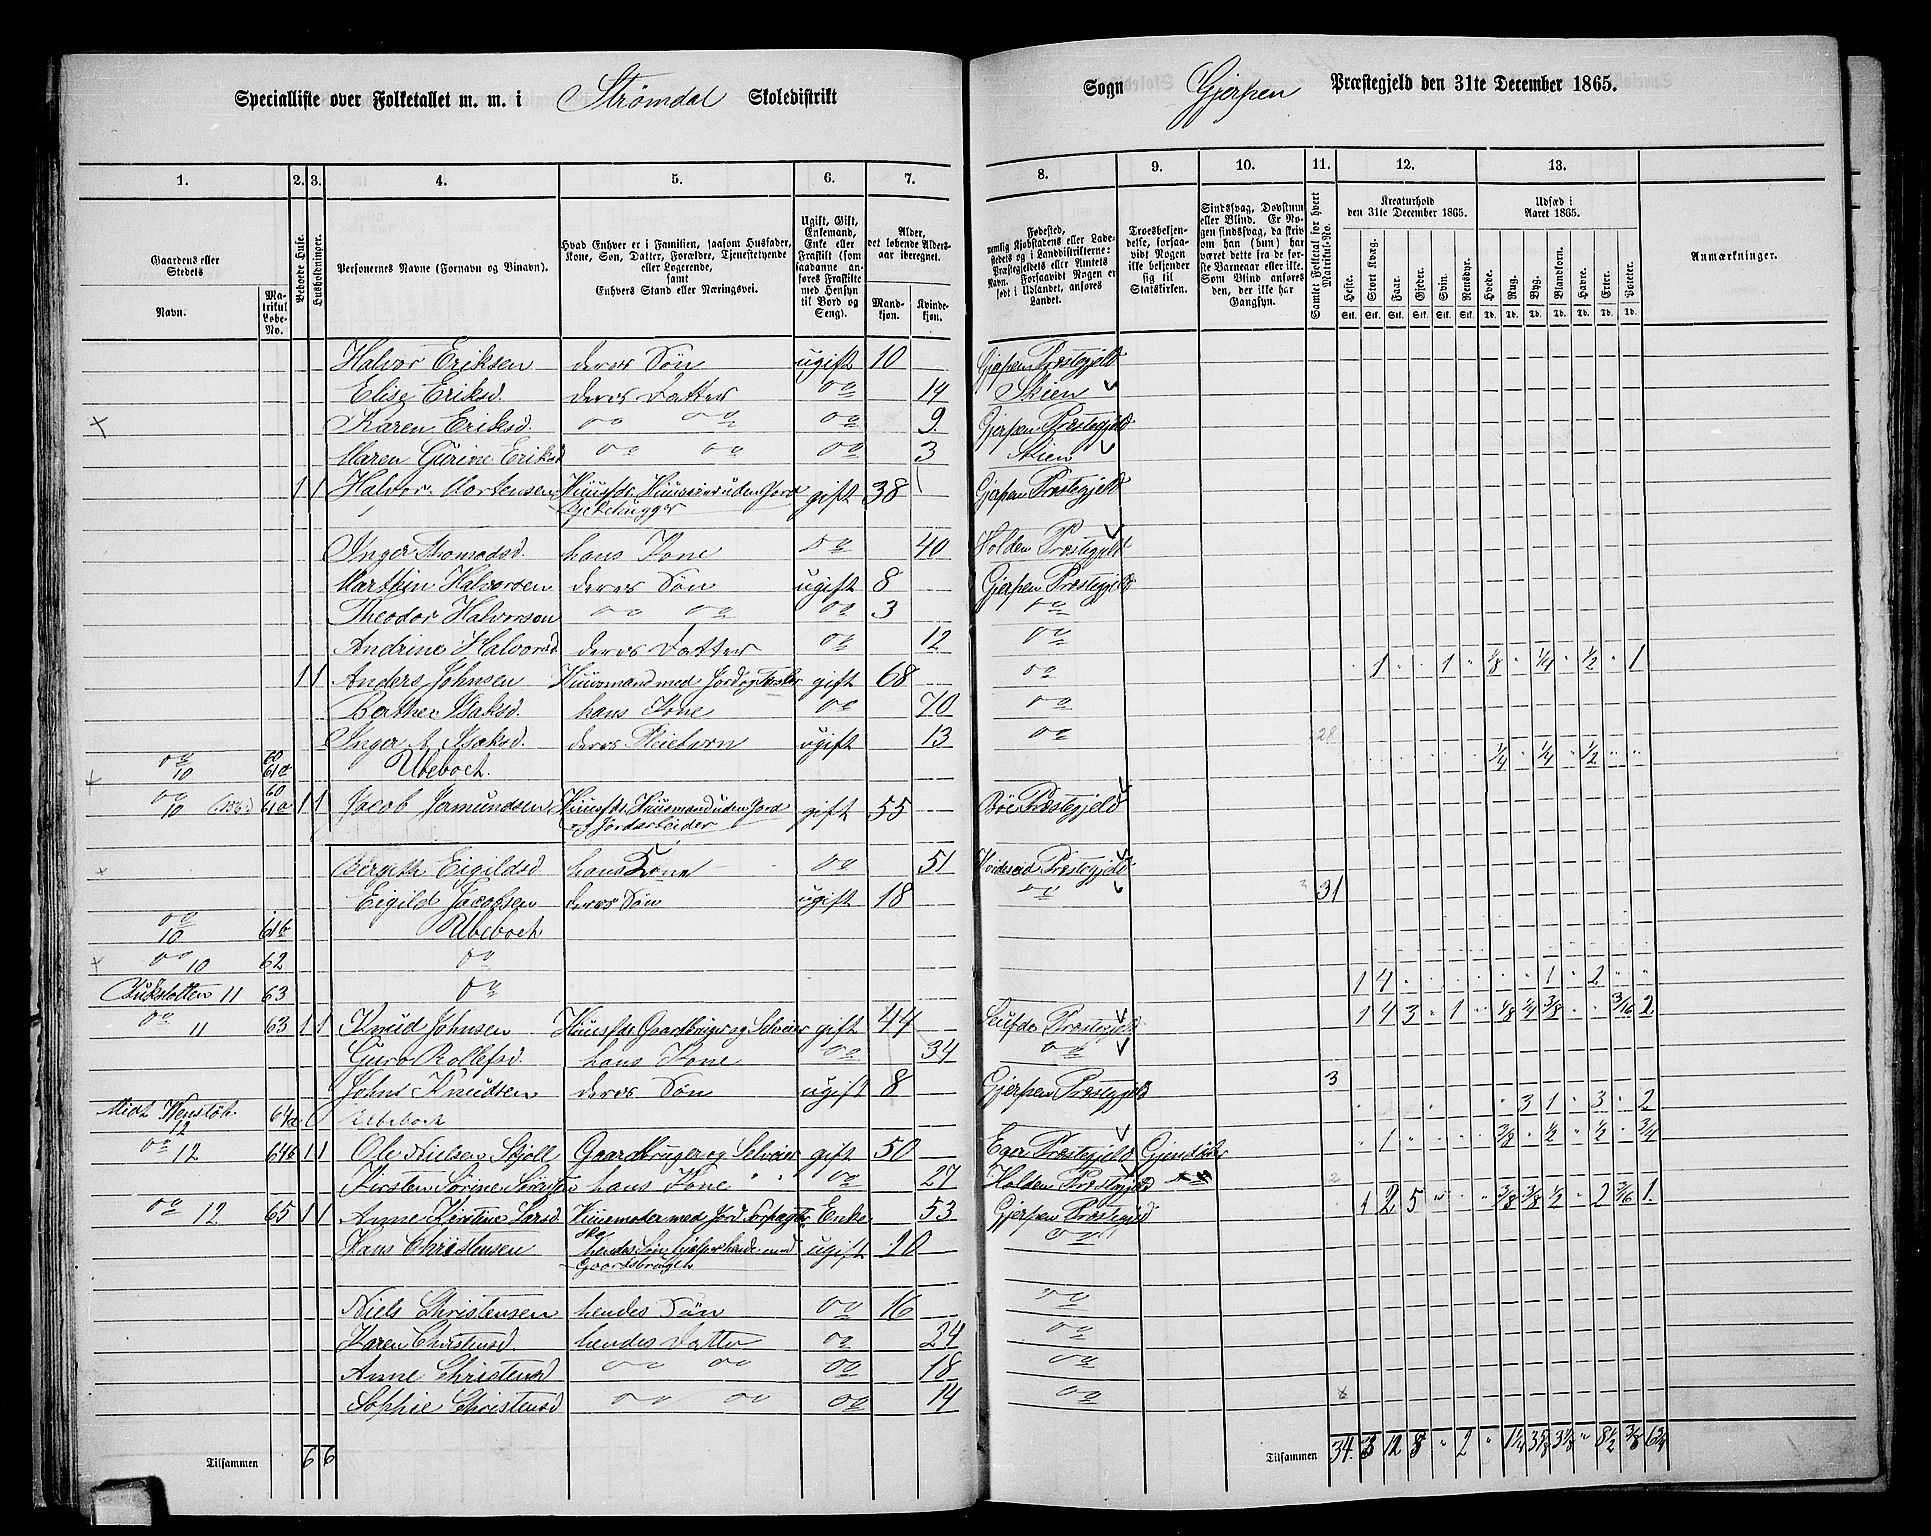 Specialliste over Folketallet m. m. i Strømdal Skoledistrikt
Sogn Gjerpen Præstegjeld den 31te December 1865.
1. 2. 3. 4. 5. 6. 7. 8. 9. 10. 11. 12. 13.
Gaardens eller Stedets
Navn.
Matrikul Løbe-No.
Beboede Huse.
Husholdninger.
Personernes Navne (Fornavn og Tilnavn).
Hvad Enhver er i Familien, saasom Husfader, Kone, Søn, Datter, Forældre, Tjenestetyende eller Logerende, samt Enhvers Stand eller Næringsvei.
Ugift, Gift, Enkemand, Enke eller Fraskilt (som saadanne anføres Fraskilte med Hensyn til Bord og Seng).
Alder, det løbende Aldersaar iberegnet.
Mandkjøn. Kvindekjøn.
Fødested, nemlig Kjøbstadens eller Ladestedets og i Landdistrikterne: Præstegjeldets eller Amtets Navn. Forsaavidt Nogen er født i Udlandet, anføres Landet.
Troesbekjendelse, forsaavidt Nogen ikke bekjender sig til Statskirken.
Sindssvag, Døvstum eller Blind. Er Nogen sindssvag, da skriv om han (hun) har været dette fra sine Barneaar eller ikke. Som Blind anføres den, der ikke har Gangsyn.
Samlet Folketal for hvert Matrikul-No.
Kreaturhold den 31te December 1865.
Heste. Stort Kvæg. Faar. Gjeder. Svin. Rensdyr.
Udsæd i Aaret 1865.
Hvede. Rug. Byg. Blandkorn. Havre. Erter. Poteter.
Anmærkninger.
Halvor Eriksen deres Søn ugift 10 Gjerpen Præstegjeld
Elise Eriksd. deres Datter do 14 Skien
Karen Eriksd. do do do 9 Gjerpen Præstegjeld
Maren Gurine Eriksd do do do 3 Skien
1 1 Halvor Mortensen gift 38 Gjerpen Præstegjeld
Inger Thomasd. hans Kone do 40 Holden Præstegjeld
Marthin Halvorsen deres Søn ugift 8 Gjerpen Præstegjeld
Theodor Halvorsen do do do 3 do
Andrine Halvorsd deres Datter do 12 do
1 1 Anders Johnsen Huusmand med Jord gift 68 do 1 1 1/8 1/4 1/2 1
Berthe Isaksd. hans Kone do 70 do
Inger A. Isaksd. deres Pleiebarn ugift 13 do 28
do 10 60 61a Ubeboet. 1/4 1/4 1/2
do 10 60 61a 1 1 Jacob Jermundsen Huusfdr. Huusmand uden Jord og Jordarbeider gift 55 Bøe Præstegjeld
Bergith Eigildsd. hans Kone do 51 Hvideseid Præstegjeld
Eigild Jacobsen deres Søn ugift 18 do 31
do 10 61b Ubeboet.
do 10 62 do
11 63 do 1 4 1 2
do 11 63 1 1 Knud Johnsen Huusfdr. Gaardbruger og Selveier gift 44 Præstegjeld 1 4 3 1 1/8 1/4 3/8 3/16 2
Guro Rollefsd. hans Kone do 34 do
John Knudsen deres Søn ugift 8 Gjerpen Præstegjeld 3
Midt 12 64a Ubeboet 3 1 3 2
do 12 64b 1 1 Ole Nielsen Gaardbruger og Selveier gift 50 Eger Præstegjeld 1 3/8 1/2 1/2 3/4
Kirsten Sørine hans Kone do 27 Holden Præstegjeld do 2
do 12 65 1 1 Anne Kirstine Larsd. Enke 53 Gjerpen Præstegjeld 1 2 5 3/8 3/8 1/2 2 3/16 1
Hans Christensen ugift 20 do
Niels Christensen hendes Søn do 16 do
Karen Christensd. hendes Datter do 24 do
Anne Christensd do do do 18 do
Sophie Christensd do do do 14 do
Tilsammen 6 6
Tilsammen 34 3 12 8 2